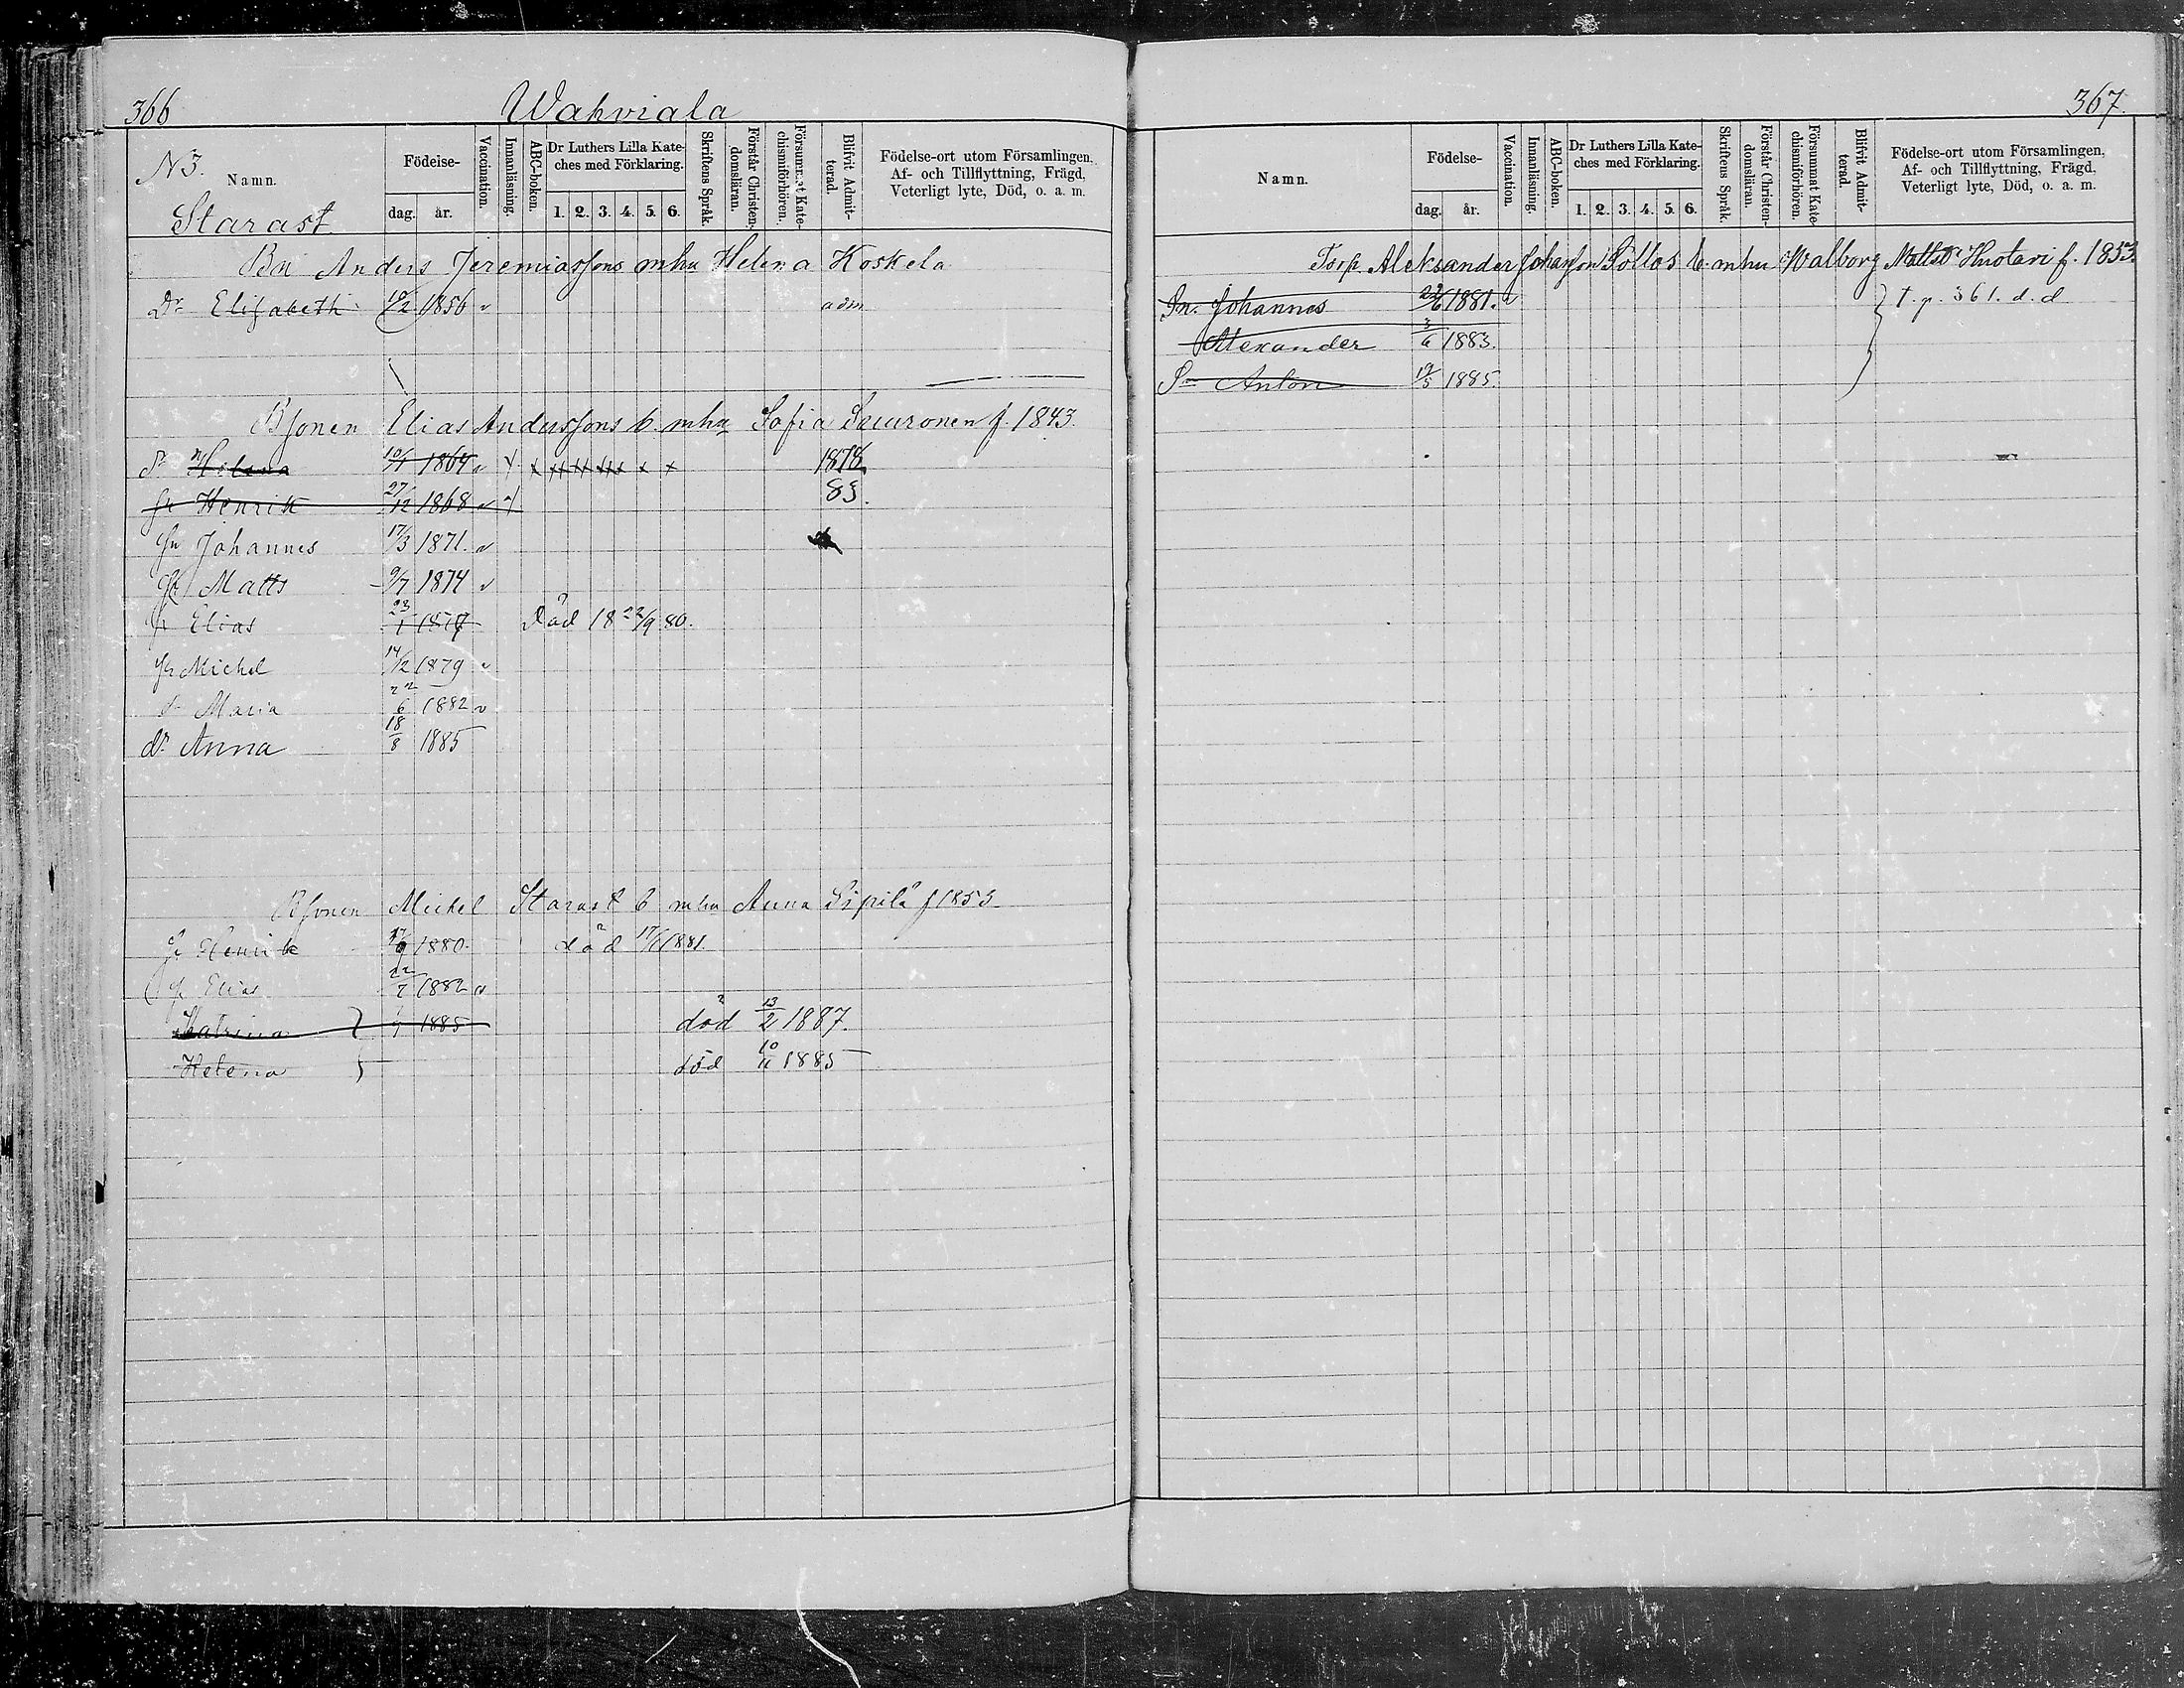 366
Wahviala
N3.
Namn.
Starast
Födelse-
dag. år.
Vaccination.
Innanläsning.
ABC-boken.
Dr Luthers Lilla Kate-
ches med Förklaring.
1. 2. 3. 4. 5. 6.
Skriftens Språk.
Förstår Christen-
domsläran.
Försummat Kate-
chismiförhören.
Blifvit Admit-
terad.
Födelse-ort utom Församlingen.
Af- och Tillflyttning, Frägd,
Veterligt lyte, Död, o. a. m.
Bn Anders Jeremiassons mhu Helena Koskela
Dr Elisabeth 1856 v adm
Bsonen Elias Anderssons b. mhu Sofia f. 1843.
Helena 10/1 1864 v x x xx xx xxx x x 1878
Henrik 27/12 1868 v 85.
Sn Johannes 17/3 1871. v
Matts 9/7 1874 v
Elias 23/1 död 18 22/9 80.
Michel 14/2 1879 v
Maria 22/6 1882 v
dr Anna 18/8 1885
Bsonen Michel Starast b mhu Anna Sipilä f 1853
Henrik 1880. död 1881.
Elias 1882 v
Katrina } 1885 död 13/2 1887.
Helena } död 10/11 1885
367.
Namn.
Födelse-
dag. år.
Vaccination.
Innanläsning.
ABC-boken.
Dr Luthers Lilla Kate-
ches med Förklaring.
1. 2. 3. 4. 5. 6.
Skriftens Språk.
Förstår Christen-
domsläran.
Försummat Kate-
chismiförhören.
Blifvit Admit-
terad.
Födelse-ort utom Församlingen,
Af- och Tillflyttning, Frägd,
Veterligt lyte, Död, o. a. m.
Torp. Aleksander Johansson Söllos b mhu Walborg Huotari f. 1853.
Sn. Johannes 1881. v } t. p. 361. d. d
Alexander 3/6 1883.
Sn Anton 19/5 1885.